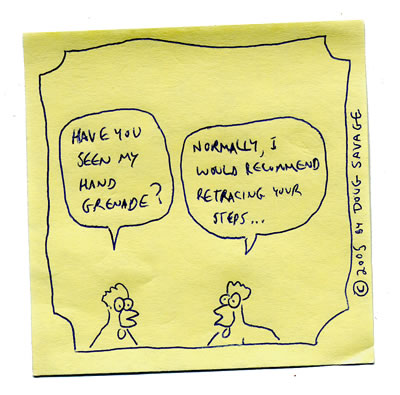 HAVE YOU
SEEN MY
HAND
GRENADE?
NORMALLY, I
WOULD RECOMMEND
RETRACING YOUR
STEPS...
© 2005 BY DOUG SAVAGE